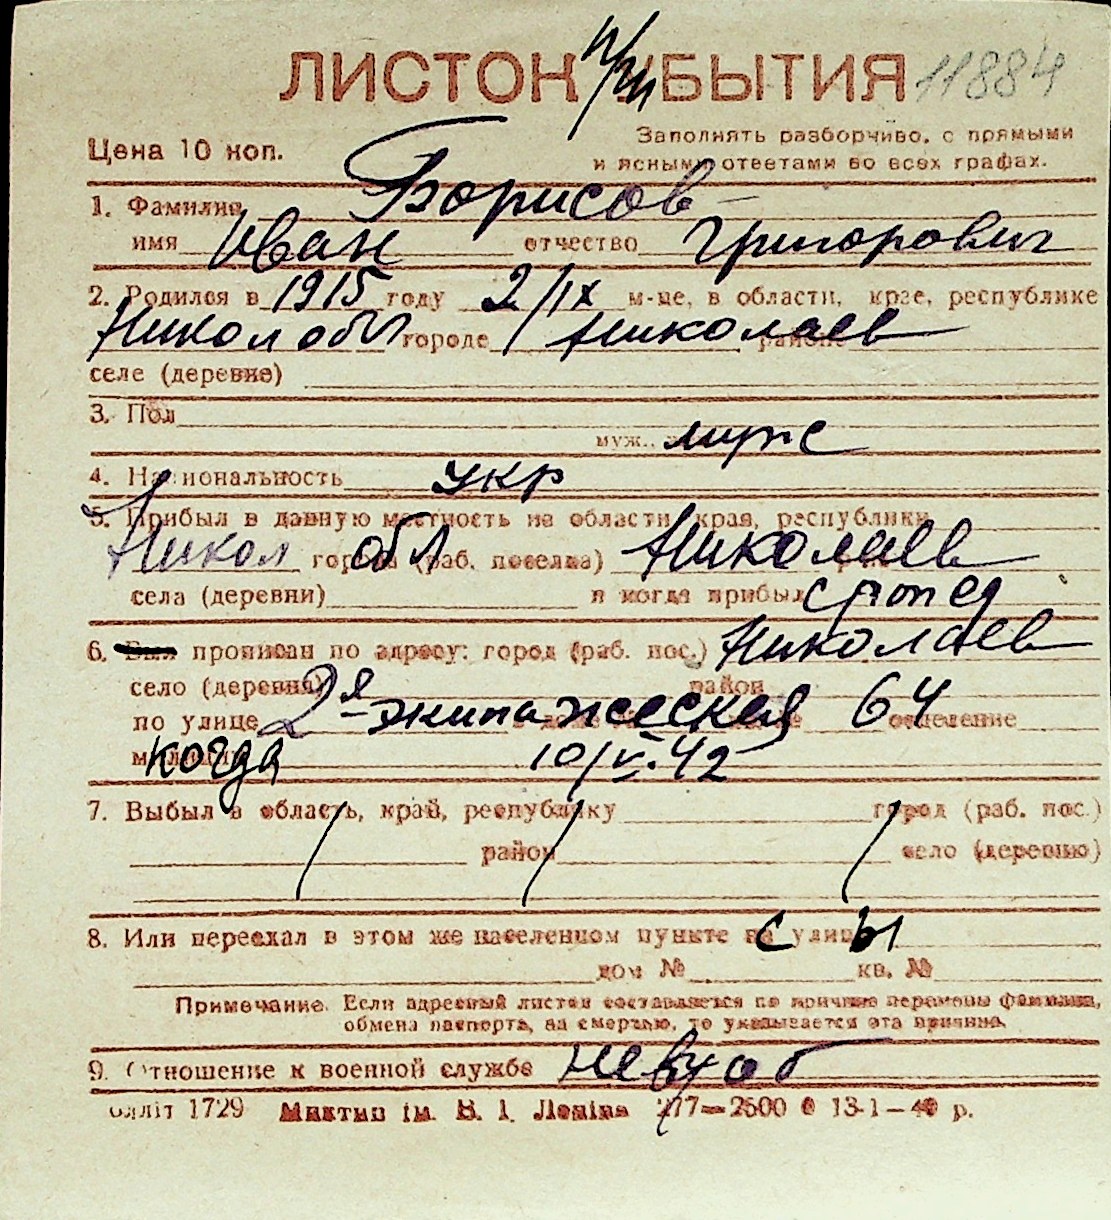 ЛИСТОК УБЫТИЯ 11884
Цена 10 коп.
Заполнять разборчиво, с прямыми
и ясными ответами во всех графах.
1. Фамилия Борисов
имя Иван отчество Григорович
2. Родился в 1915 году 2/IX м-це, в области, крае, республике
Никол обл городе Николаев районе
селе (деревне)
3. Пол
муж.. муж с
4. Национальность укр
5. Прибыл в данную местность из области, края, республики
Никол обл города (раб. поселка) Николаев
села (деревни) и когда прибыл
6. Был прописан по адресу: город (раб. пос.) Николаев
село (деревня) район
по улице 2я экипажеская № 64 отделение
милиции когда 10/VI.42
7. Выбыл в область, край, республику город (раб. пос.)
район село (деревню)
8. Или переехал в этом же населенном пункте на улицу
дом № кв. №
Примечание. Если адресный листок составляется по причине перемены фамилии,
обмена паспорта, за смертью, то указывается эта причина.
9. Отношение к военной службе
1729 Миктип ім. В. І. Леніна 277—2500 13-1—40 р.